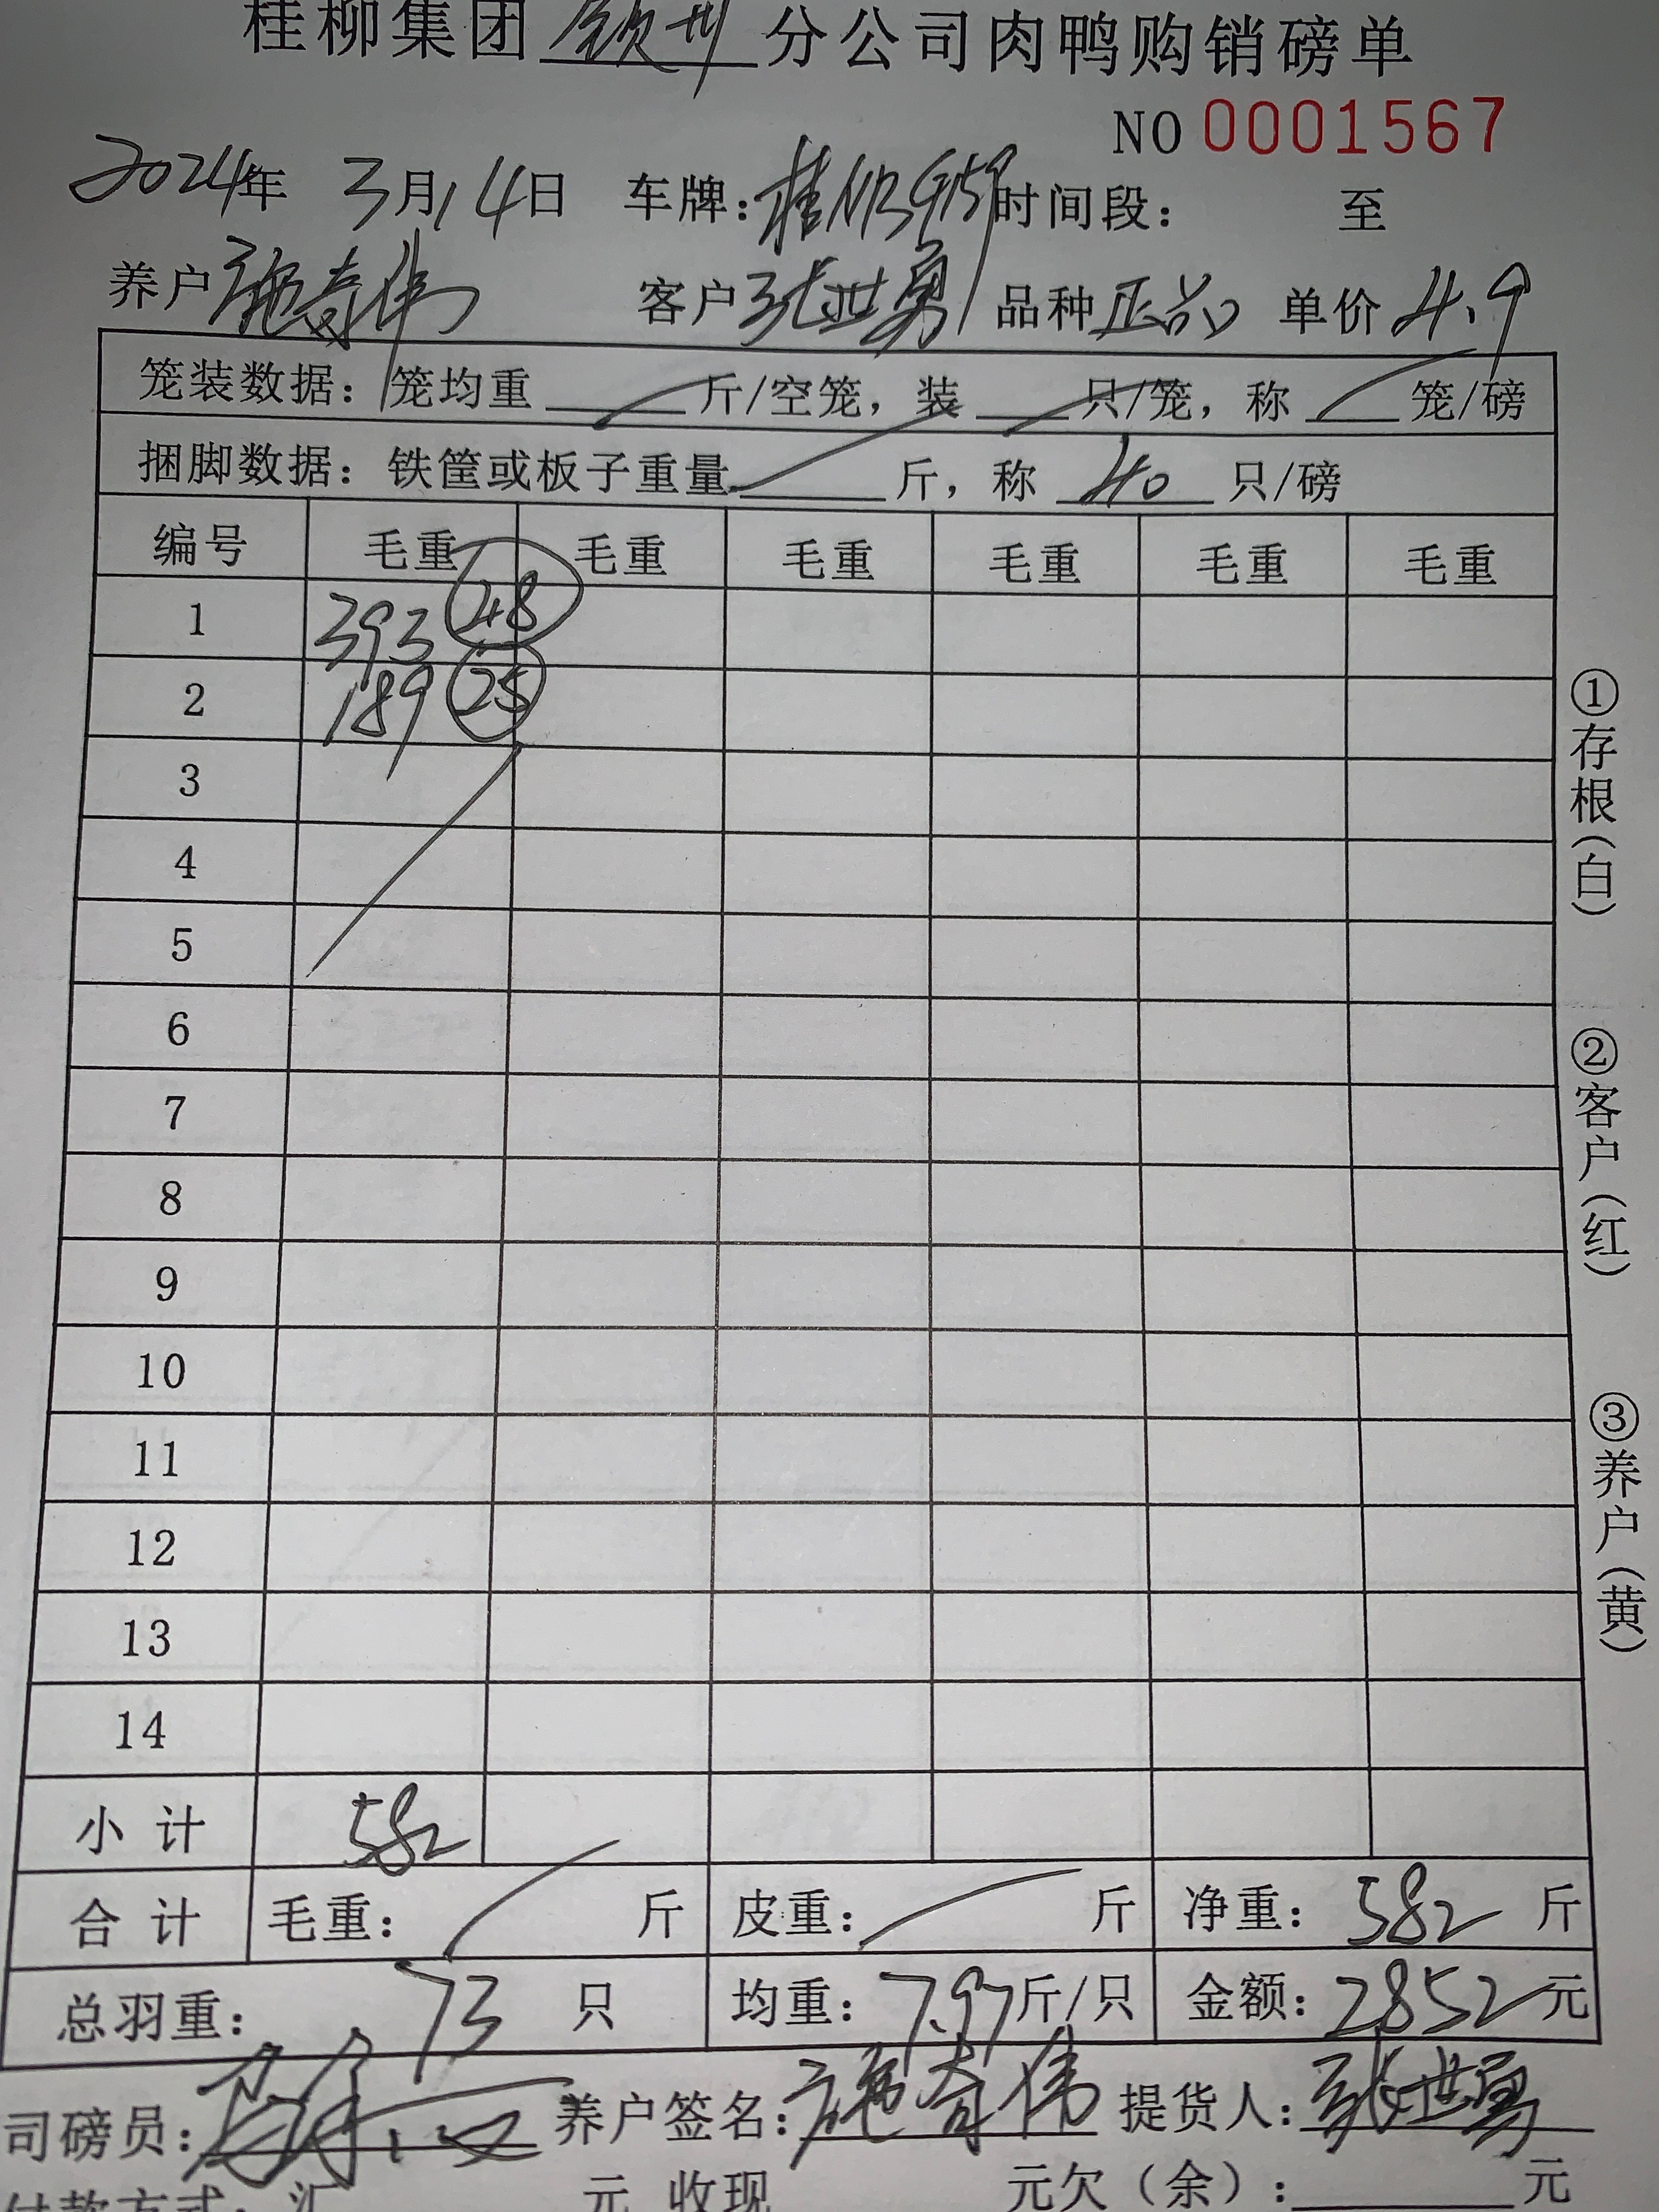 桂柳集团 钦州 分公司肉鸭购销磅单
NO 0001567
2024年 3月14日 车牌: 桂 时间段: 至
养户 施奇伟 客户 张世勇 品种 正品 单价 4.9
笼装数据: 笼均重 斤/空笼, 装 只/笼, 称 笼/磅
捆脚数据: 铁筐或板子重量 斤, 称 40 只/磅
编号 毛重 毛重 毛重 毛重 毛重 毛重
1 393 48
2 189 25
3
4
5
6
7
8
9
10
11
12
13
14
小计 582
合计 毛重: 斤 皮重: 斤 净重: 582 斤
总羽重: 73 只 均重: 7.97斤/只 金额: 2852元
司磅员: 养户签名: 施奇伟 提货人: 张世勇
付款方式: 汇 元 收现 元欠(余): 元
①存根(白)
②客户(红)
③养户(黄)